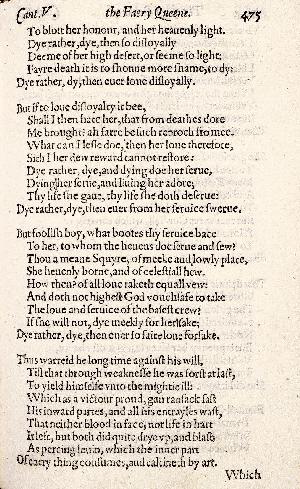 Cant. V. the Faery Queene. 475
To blott her honour, and her heauenly light.
Dye rather, dye, then so disloyally
Deeme of her high desert, or seeme so light:
Fayre death it is to shonne more shame, to dy:
Dye rather, dy, then euer loue disloyally.
But if to loue disloyalty it bee,
Shall I then hate her, that from deathes dore
Me brought? ah farre be such reproch fro mee.
What can I lesse doe, then her loue therefore,
Sith I her dew reward cannot restore:
Dye rather, dye, and dying doe her serue,
Dying her serue, and liuing her adore;
Thy life she gaue, thy life she doth deserue:
Dye rather, dye, then euer from her seruice swerue.
But foolish boy, what bootes thy seruice bace
To her, to whom the heuens doe serue and sew?
Thou a meane Squyre, of meeke and lowly place,
She heuenly borne, and of celestiall hew.
How then? of all loue taketh equall vew:
And doth not highest God vouchsafe to take
The loue and seruice of the basest crew?
If she will not, dye meekly for her sake;
Dye rather, dye, then euer so faire loue forsake.
Thus warreid he long time against his will,
Till that through weaknesse he was forst at last,
To yield himselfe vnto the mightie ill:
Which as a victour proud, gan ransack fast
His inward partes, and all his entrayles wast,
That neither blood in face, nor life in hart
It left, but both did quite drye vp, and blast
As percing leuin, which the inner part
Of euery thing consumes, and calcineth by art.
Which